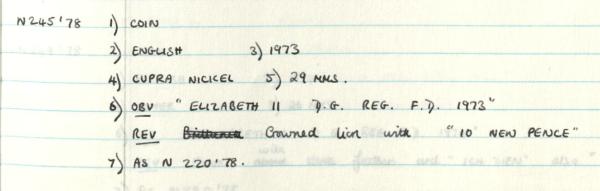 N245'78 1) COIN
2) ENGLISH 3) 1973
4) CUPRA NICKEL 5) 29 MMS.
6) OBV "ELIZABETH II D.G. REG. F.D. 1973"
REV Crowned lion with "10 NEW PENCE"
7) AS N 220'78.